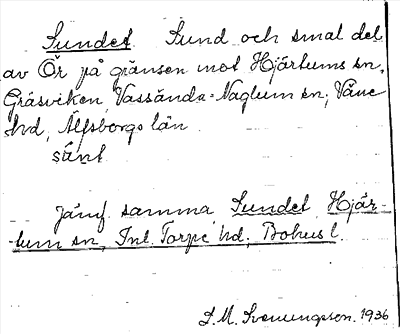 Sundet. Sund och smal del
av Ör på gränsen mot Hjärtums sn,
Gräsviken, Vassända-Naglum sn, Väne
hd, Älfsborgs län.
sånt
Jämf. samma Sundet, Hjär-
-tum sn, Inl. Torpe hd, Bohus l.
1936